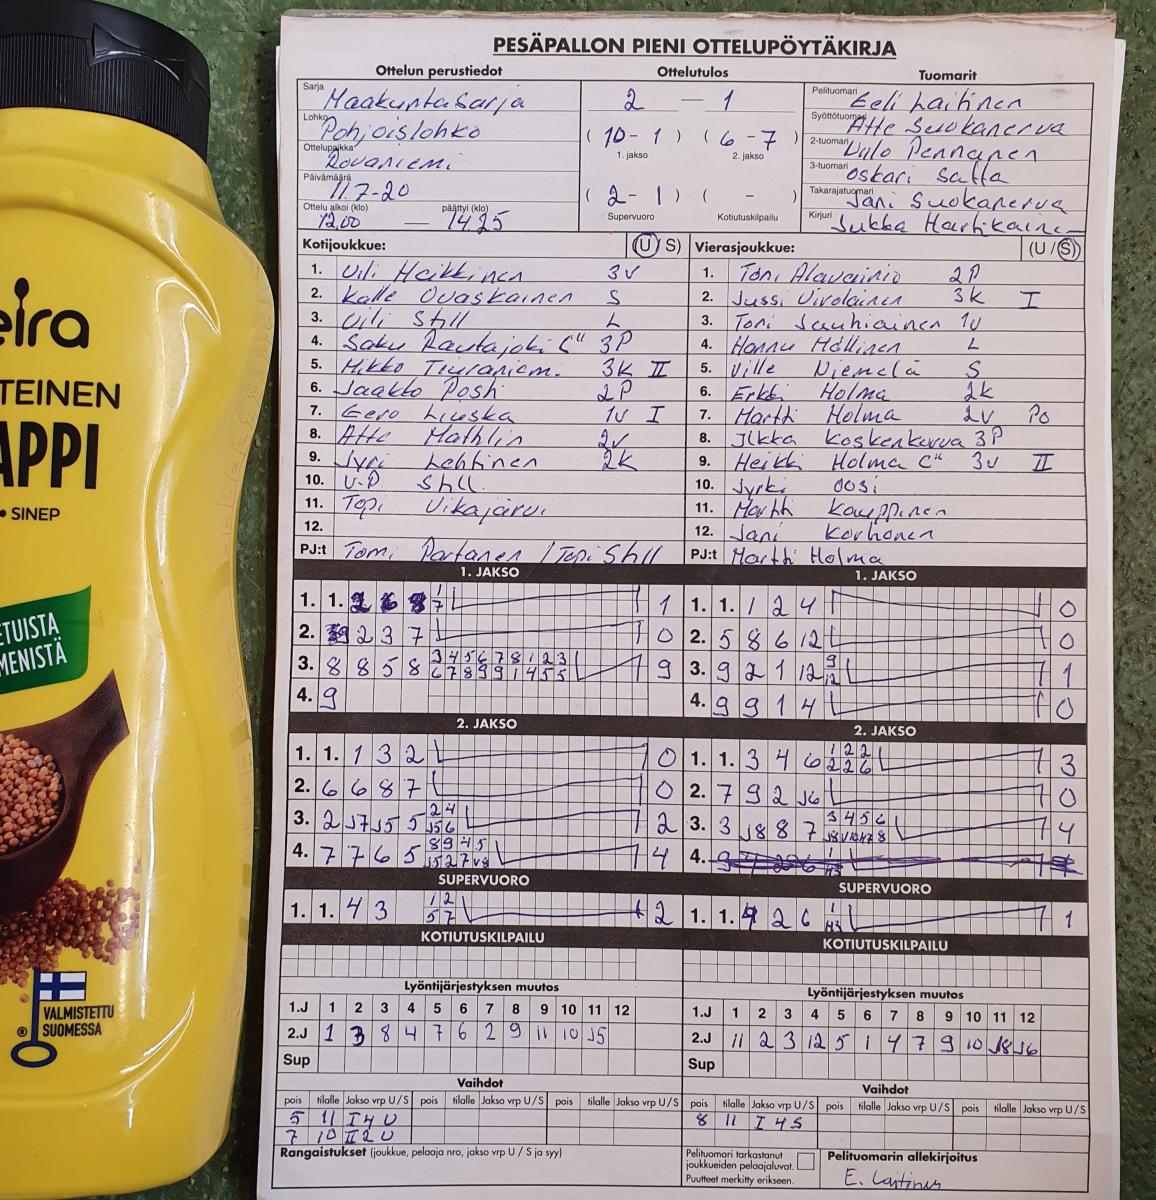 PESÄPALLON PIENI OTTELUPÖYTÄKIRJA
Ottelun perustiedot
Sarja Maakuntasarja
Lohko Pohjoislohko
Ottelupaikka Rovaniemi
Päivämäärä 11.7-20
Ottelu alkoi (klo) 12.00 — päättyi (klo) 14.25
Ottelutulos
2 — 1
(10 - 1) (6 - 7)
1. jakso 2. jakso
(2 - 1) ( - )
Supervuoro Kotiutuskilpailu
Tuomarit
Pelituomari Eeli Laitinen
Syöttötuomari Atte Suokanerva
2-tuomari Pennanen
3-tuomari Oskari Salla
Takarajatuomari Jani Suokanerva
Kirjuri Jukka Hartikainen
Kotijoukkue: (U / S)
1. Vili Heikkinen 3v
2. Kalle Ovaskainen S
3. Vili Still L
4. Saku Rautajoki C" 3P
5. Mikko 3K II
6. Jaakko Posti 2P
7. Eero Liuska 1v I
8. Atte Mathlin 2v
9. Jyri Lehtinen 2K
10. V-P Still
11. Topi Vikajärvi
12.
PJ:t Tomi Partanen / Topi Still
Vierasjoukkue: (U / S)
1. Toni Alavainio 2P
2. Jussi Virolainen 3K I
3. Toni Jauhiainen 1v
4. Hannu Mällinen L
5. Ville Niemelä S
6. Erkki Holma 2K
7. Martti Holma 2v Po
8. Ilkka Koskenkorva 3P
9. Heikki Holma C" 3v II
10. Jyrki Oosi
11. Martti Kauppinen
12. Jani Korhonen
PJ:t Martti Holma
1. JAKSO
1. 1. 1
2. 2 3 7 0
3. 8 8 5 8 9
3 4 5 6 7 8 1 2 3
6 7 8 9 9 1 4 5 5
4. 9
1. JAKSO
1. 1. 1 2 4 0
2. 5 8 6 12 0
3. 9 2 1 12 9 12 1
4. 9 9 1 4 0
2. JAKSO
1. 1. 1 3 2 0
2. 6 6 8 7 0
3. 2 J7 J5 5 2 4 J5 6 2
4. 7 7 6 5 8 9 4 5 4
2. JAKSO
1. 1. 3 4 6 1 2 2 2 2 6 3
2. 7 9 2 J6 0
3. 3 J8 8 7 3 4 5 6 4
4.
SUPERVUORO
1. 1. 4 3 1 2 5 7 2
SUPERVUORO
1. 1. 4 2 6 1 1
KOTIUTUSKILPAILU
KOTIUTUSKILPAILU
Lyöntijärjestyksen muutos
1.J 1 2 3 4 5 6 7 8 9 10 11 12
2.J 1 3 8 4 7 6 2 9 11 10 J5
Sup
Lyöntijärjestyksen muutos
1.J 1 2 3 4 5 6 7 8 9 10 11 12
2.J 11 2 3 12 5 1 4 7 9 10 J8 J6
Sup
Vaihdot
pois tilalle Jakso vrp U / S pois tilalle Jakso vrp U / S pois tilalle Jakso vrp U / S
5 11 I 4 U
7 10 II 2 U
Vaihdot
pois tilalle Jakso vrp U / S pois tilalle Jakso vrp U / S pois tilalle Jakso vrp U / S
8 11 I 4 S
Rangaistukset (joukkue, pelaaja nro, jakso vrp U / S ja syy)
Pelituomari tarkastanut
joukkueiden pelaajaluvat.
Puutteet merkitty erikseen.
Pelituomarin allekirjoitus
E. Laitinen
eira
TEINEN
APPI
• SINEP
ETUISTA
MENISTÄ
VALMISTETTU
SUOMESSA
®